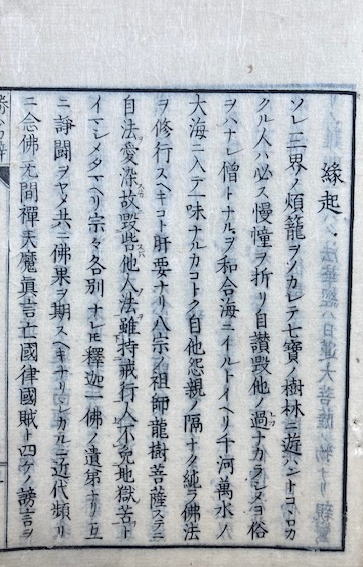 緣起
ソレ三界ノ煩籠ヲノカレテ七寶ノ樹林ニ遊ハントコヽロカ
クル人ハ必ス慢幢ヲ折リ自讃毀他ノ過ナカラシメヨ俗
ヲハナレ僧トナルヲ和合海ニイルトイヘリ千河萬水ノ
大海ニ入テ一味ナルカコトク自他怨親ノ隔ナク純ラ佛法
ヲ修行スヘキコト肝要ナリ八宗ノ祖師龍樹菩薩ステニ
自法愛染故毀呰他人法雖持戒行人不免地獄苦ト
イマシメタマヘリ宗々各別ナレモ釋迦一佛ノ遺第ナリ互
ニ諍鬪ヲヤメ共ニ佛果ヲ期スヘキナリシカルニ近代頻リ
ニ念佛无間禪天魔眞言亡國律國賊ト四ケノ謗言ヲ